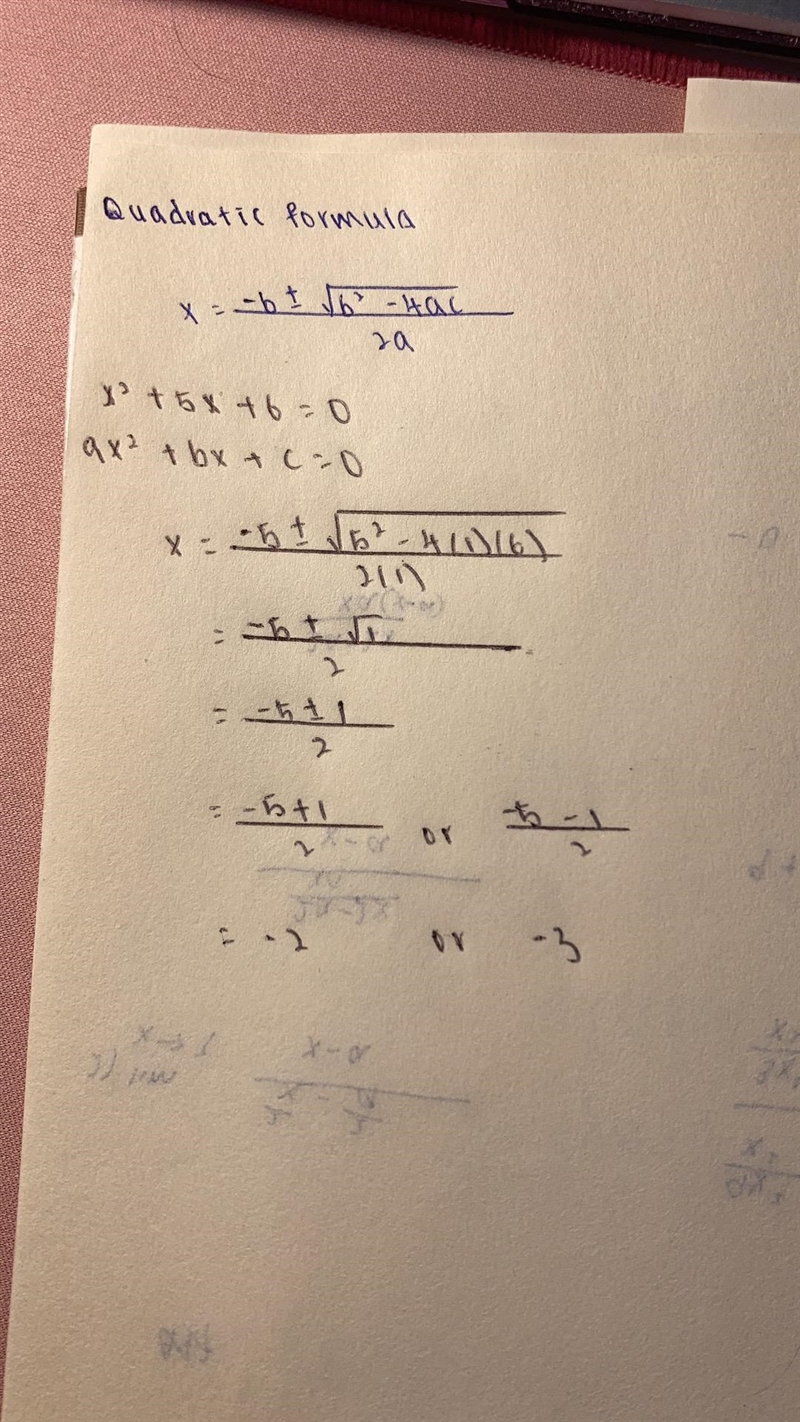 Quadratic formula
x = -b ± √(b² - 4ac) / 2a
x² + 5x + 6 = 0
ax² + bx + c = 0
x = -5 ± √(5² - 4(1)(6)) / 2(1)
= -5 ± √1 / 2
= -5 ± 1 / 2
= -5+1 / 2 or -5 - 1 / 2
= -2 or -3